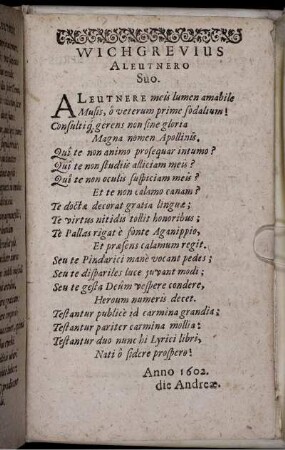 WICHGREVIUS
ALEUTNERO
SUO.
ALEUTNERE meis lumen amabile
Musis, ô veterum prime sodalium!
Consultiq́; gerens non sine gloria
Magna nomen Apollinis.
Qui te non animo prosequar intumo?
Qui te non studiis alliciam meis?
Qui te non oculis suspiciam meis?
Et te non calamo canam?
Te docta decorat gratia linguæ;
Te virtus nitidis tollit honoribus;
Te Pallas rigat è fonte Aganippio,
Et præsens calamum regit.
Seu te Pindarici manè vocant pedes;
Seu te dispariles luce juvant modi;
Seu te gesta Deûm vespere condere,
Heroum numeris decet.
Testantur publicè id carmina grandia;
Testantur pariter carmina mollia:
Testantur duo nunc hi Lyrici libri,
Nati ô sidere prospero!
Anno 1602.
die Andreæ.